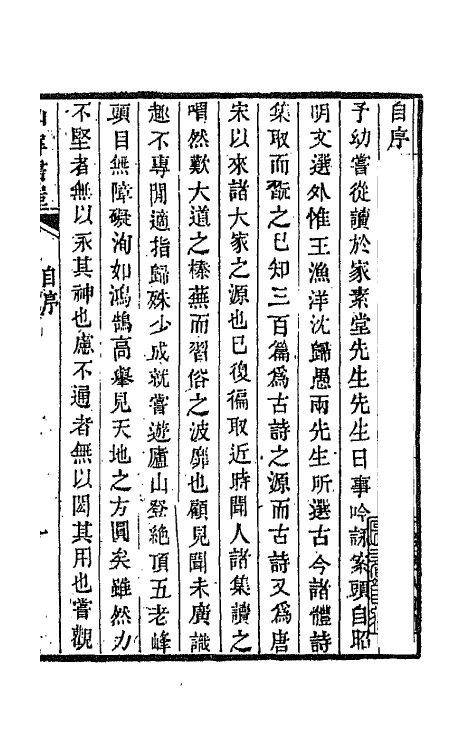 自序
予幼嘗從讀於家素堂先生先生日事吟詠案頭自昭
明文選外惟王漁洋沈歸愚兩先生所選古今諸體詩
集取而翫之已知三百篇爲古詩之源而古詩又爲唐
宋以來諸大家之源也已復徧取近時聞人諸集讀之
喟然歎大道之榛蕪而習俗之波靡也顧見聞未廣識
趣不專閒適指歸殊少成就嘗遊廬山登絶頂五老峰
頭目無障礙洵如鴻鵠高舉見天地之方圓矣雖然力
不堅者無以永其神也慮不通者無以閎其用也嘗觀
自序
一